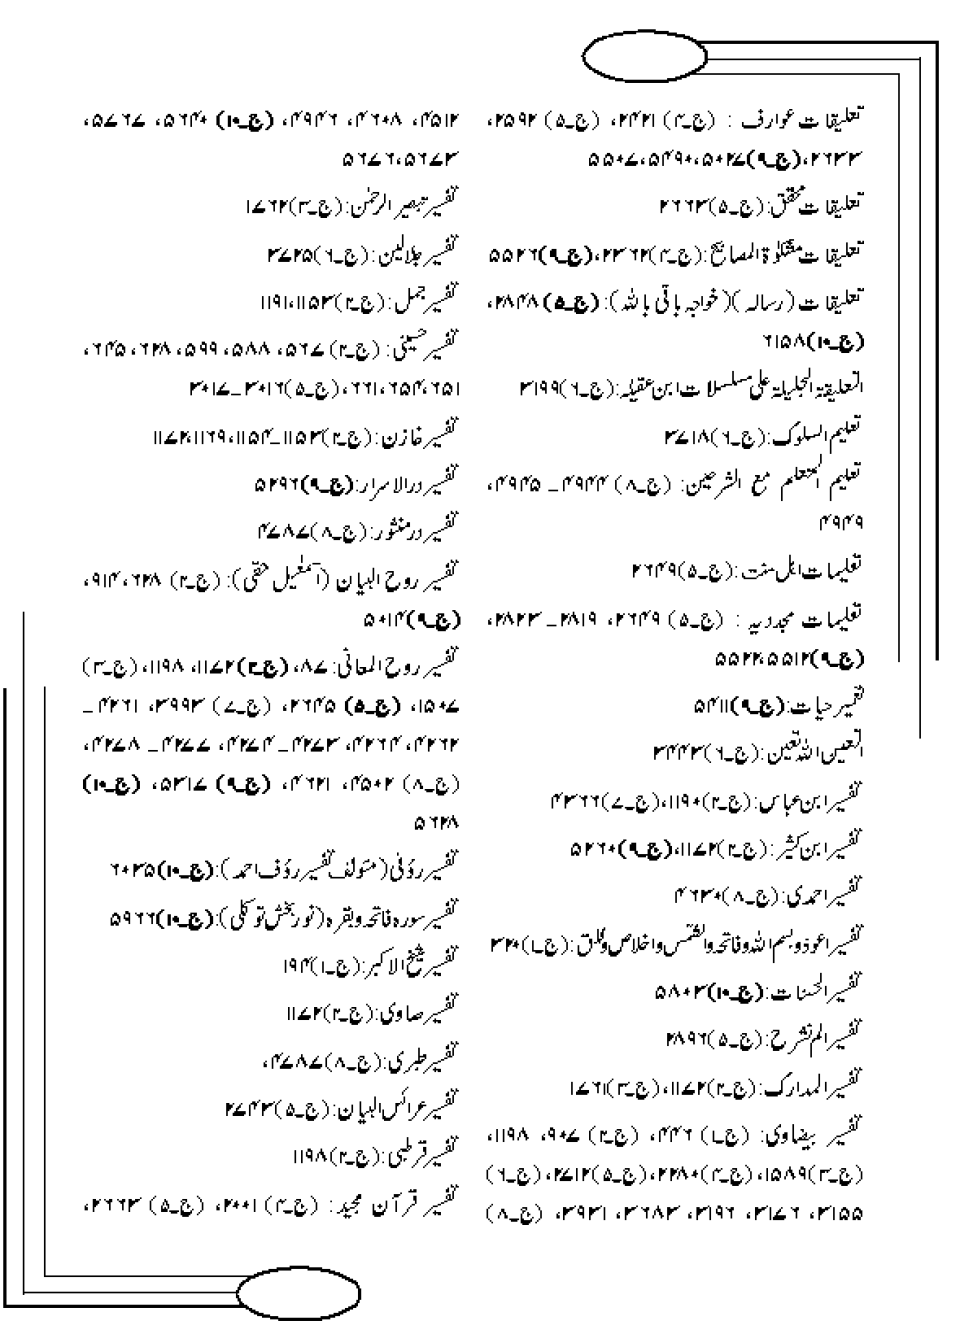 تعلیقات عوارف : (ج۔۴) ۲۴۲۱، (ج۔۵) ۲۵۹۲،
۲۶۳۳،(ج۔۹)۵۰۲۷،۵۴۹۰،۵۵۰۷
تعلیقات محقق:(ج۔۵)۲۶۶۳
تعلیقات مشکوٰۃ المصابیح:(ج۔۴)۲۳۶۲،(ج۔۹)۵۵۲۶
تعلیقات (رسالہ)(خواجہ باقی باللہ):(ج۔۵)۲۸۴۸،
(ج۔۱۰)۶۱۵۸
التعلیقۃ الجلیلۃ علی مسلسلات ابن عقیلہ:(ج۔۶)۳۱۹۹
تعلیم السلوک:(ج۔۶)۳۷۱۸
تعلیم المتعلم مع الشرحین: (ج۔۸) ۴۹۴۴۔۴۹۴۵،
۴۹۴۹
تعلیمات اہل سنت:(ج۔۵)۲۶۴۹
تعلیمات مجددیہ : (ج۔۵) ۲۶۴۹، ۲۸۱۹۔۲۸۲۳،
(ج۔۹)۵۵۱۲،۵۵۲۲
تعمیر حیات:(ج۔۹)۵۴۱۱
التعین اللاتعین:(ج۔۶)۳۴۴۳
تفسیر ابن عباس:(ج۔۲)۱۱۹۰،(ج۔۷)۴۳۶۶
تفسیر ابن کثیر:(ج۔۲)۱۱۷۲،(ج۔۹)۵۲۶۰
تفسیر احمدی:(ج۔۸)۴۶۳۰
تفسیر اعوذ و بسم اللہ و فاتحہ والشمس و اخلاص و فلق:(ج۔۱)۳۲۰
تفسیر الحسنات:(ج۔۱۰)۵۸۰۳
تفسیر الم نشرح:(ج۔۵)۲۸۹۶
تفسیر المدارک:(ج۔۲)۱۱۷۲،(ج۔۳)۱۷۶۱
تفسیر بیضاوی: (ج۔۱) ۴۴۶، (ج۔۲) ۹۰۷، ۱۱۹۸،
(ج۔۳)۱۵۸۹،(ج۔۴)۲۲۸۰،(ج۔۵)۲۷۱۲،(ج۔۶)
۳۱۵۵، ۳۱۷۶، ۳۱۹۶، ۳۶۸۳، ۳۹۳۱، (ج۔۸)
۴۵۱۲، ۴۶۰۸، ۴۹۴۶، (ج۔۱۰) ۵۶۴۰، ۵۷۶۷،
۵۶۷۳،۵۶۷۶
تفسیر تبصیر الرحمٰن:(ج۔۳)۱۷۶۲
تفسیر جلالین:(ج۔۶)۳۷۲۵
تفسیر جمل:(ج۔۲)۱۱۵۳،۱۱۹۱
تفسیر حسینی:(ج۔۲) ۵۶۷، ۵۸۸، ۵۹۹، ۶۲۸، ۶۴۵،
۶۵۱،۶۵۴،۶۶۱، (ج۔۵)۳۰۱۶۔۳۰۱۷
تفسیر خازن:(ج۔۲)۱۱۵۳۔۱۱۵۴،۱۱۶۹،۱۱۷۲
تفسیر درالاسرار:(ج۔۹)۵۲۹۶
تفسیر درمنثور:(ج۔۸)۴۷۸۷
تفسیر روح البیان (اسمٰعیل حقی): (ج۔۲) ۶۲۸، ۹۱۴،
(ج۔۹)۵۰۱۴
تفسیر روح المعانی: ۸۷، (ج۔۲)۱۱۷۲، ۱۱۹۸، (ج۔۳)
۱۵۰۷، (ج۔۵) ۲۶۴۵، (ج۔۷) ۳۹۹۳، ۴۲۶۱۔
۴۲۶۲، ۴۲۶۴، ۴۲۷۳۔۴۲۷۴، ۴۲۷۷۔۴۲۷۸،
(ج۔۸) ۴۵۰۲، ۴۶۲۱، (ج۔۹) ۵۳۱۷، (ج۔۱۰)
۵۶۲۸
تفسیر رؤفی(مئولف تفسیر رؤف احمد):(ج۔۱۰)۶۰۳۵
تفسیر سورہ فاتحہ و بقرہ(نور بخش توکلی):(ج۔۱۰)۵۹۶۶
تفسیر شیخ الاکبر:(ج۔۱)۱۹۴
تفسیر صاوی:(ج۔۲)۱۱۷۲
تفسیر طبری:(ج۔۸)۴۷۸۷،
تفسیر عرائس البیان:(ج۔۵)۲۷۴۳
تفسیر قرطبی:(ج۔۲)۱۱۹۸
تفسیر قرآن مجید: (ج۔۴) ۲۰۰۱، (ج۔۵) ۲۶۶۳،